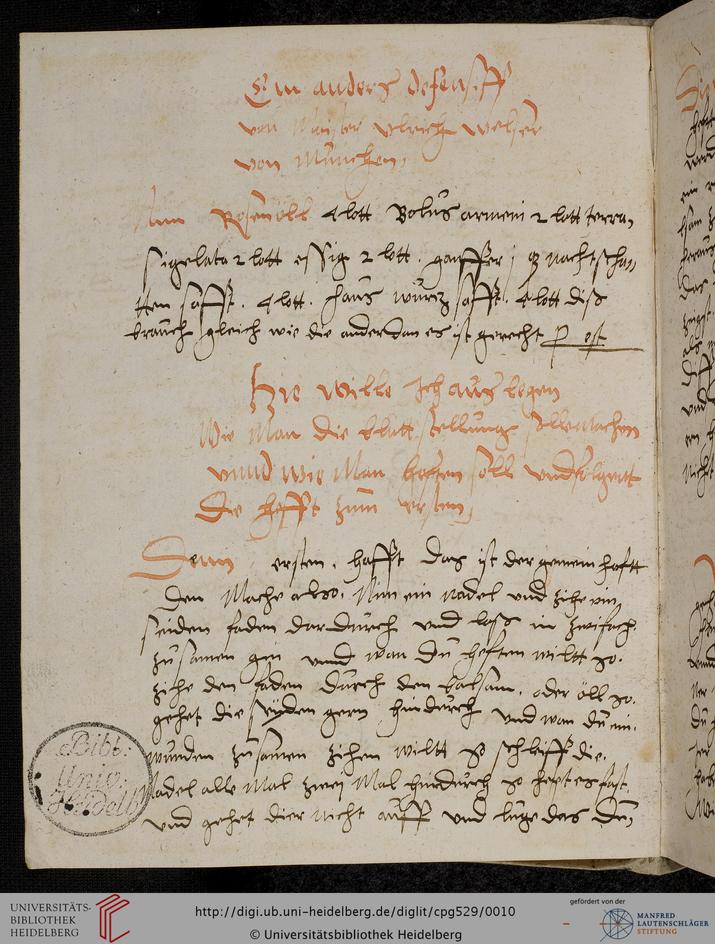 Ein anders defensiff
von Maister Vlrich Welser
von München,
Nim Rosenöll 4 lott Bolus armein 2 lott terra,
sigelata 2 lott essig 2 lott . gauffer j q nachtschan,
tten safft . 4 lott . haus wurcz safft . 4 lott diss
brauch gleich wie die ander dan es ist gerecht P est
Hie wille ich aus legen
Wie Man die blutt stellung soll Machen
vnnd wie Man hefften soll vnd folgent
die hefft zum ersten,
Zum ersten . hafft das ist der gemein hafft
den Mache also . Nim ein nadel vnd zihe ein
seiden faden dardurch vnd lass in zwifach
zu samen gen vnnd wan du hefften wiltt so .
zihe den faden durch den balsam . oder öll so .
gehet die seyden gern hinderch vnd wan du ein .
wunden zusamen zihen wiltt so schleiff die .
Nadel alle Mal zwei Mal hindurch so hept es fast
vnd gehet dier nicht auff vnd luge das du,
Bibl:
Univ.
Heidelb
UNIVERSITÄTS-
BIBLIOTHEK
HEIDELBERG
http://digi.ub.uni-heidelberg.de/diglit/cpg529/0010
© Universitätsbibliothek Heidelberg
gefördert von der
MANFRED
LAUTENSCHLÄGER
STIFTUNG